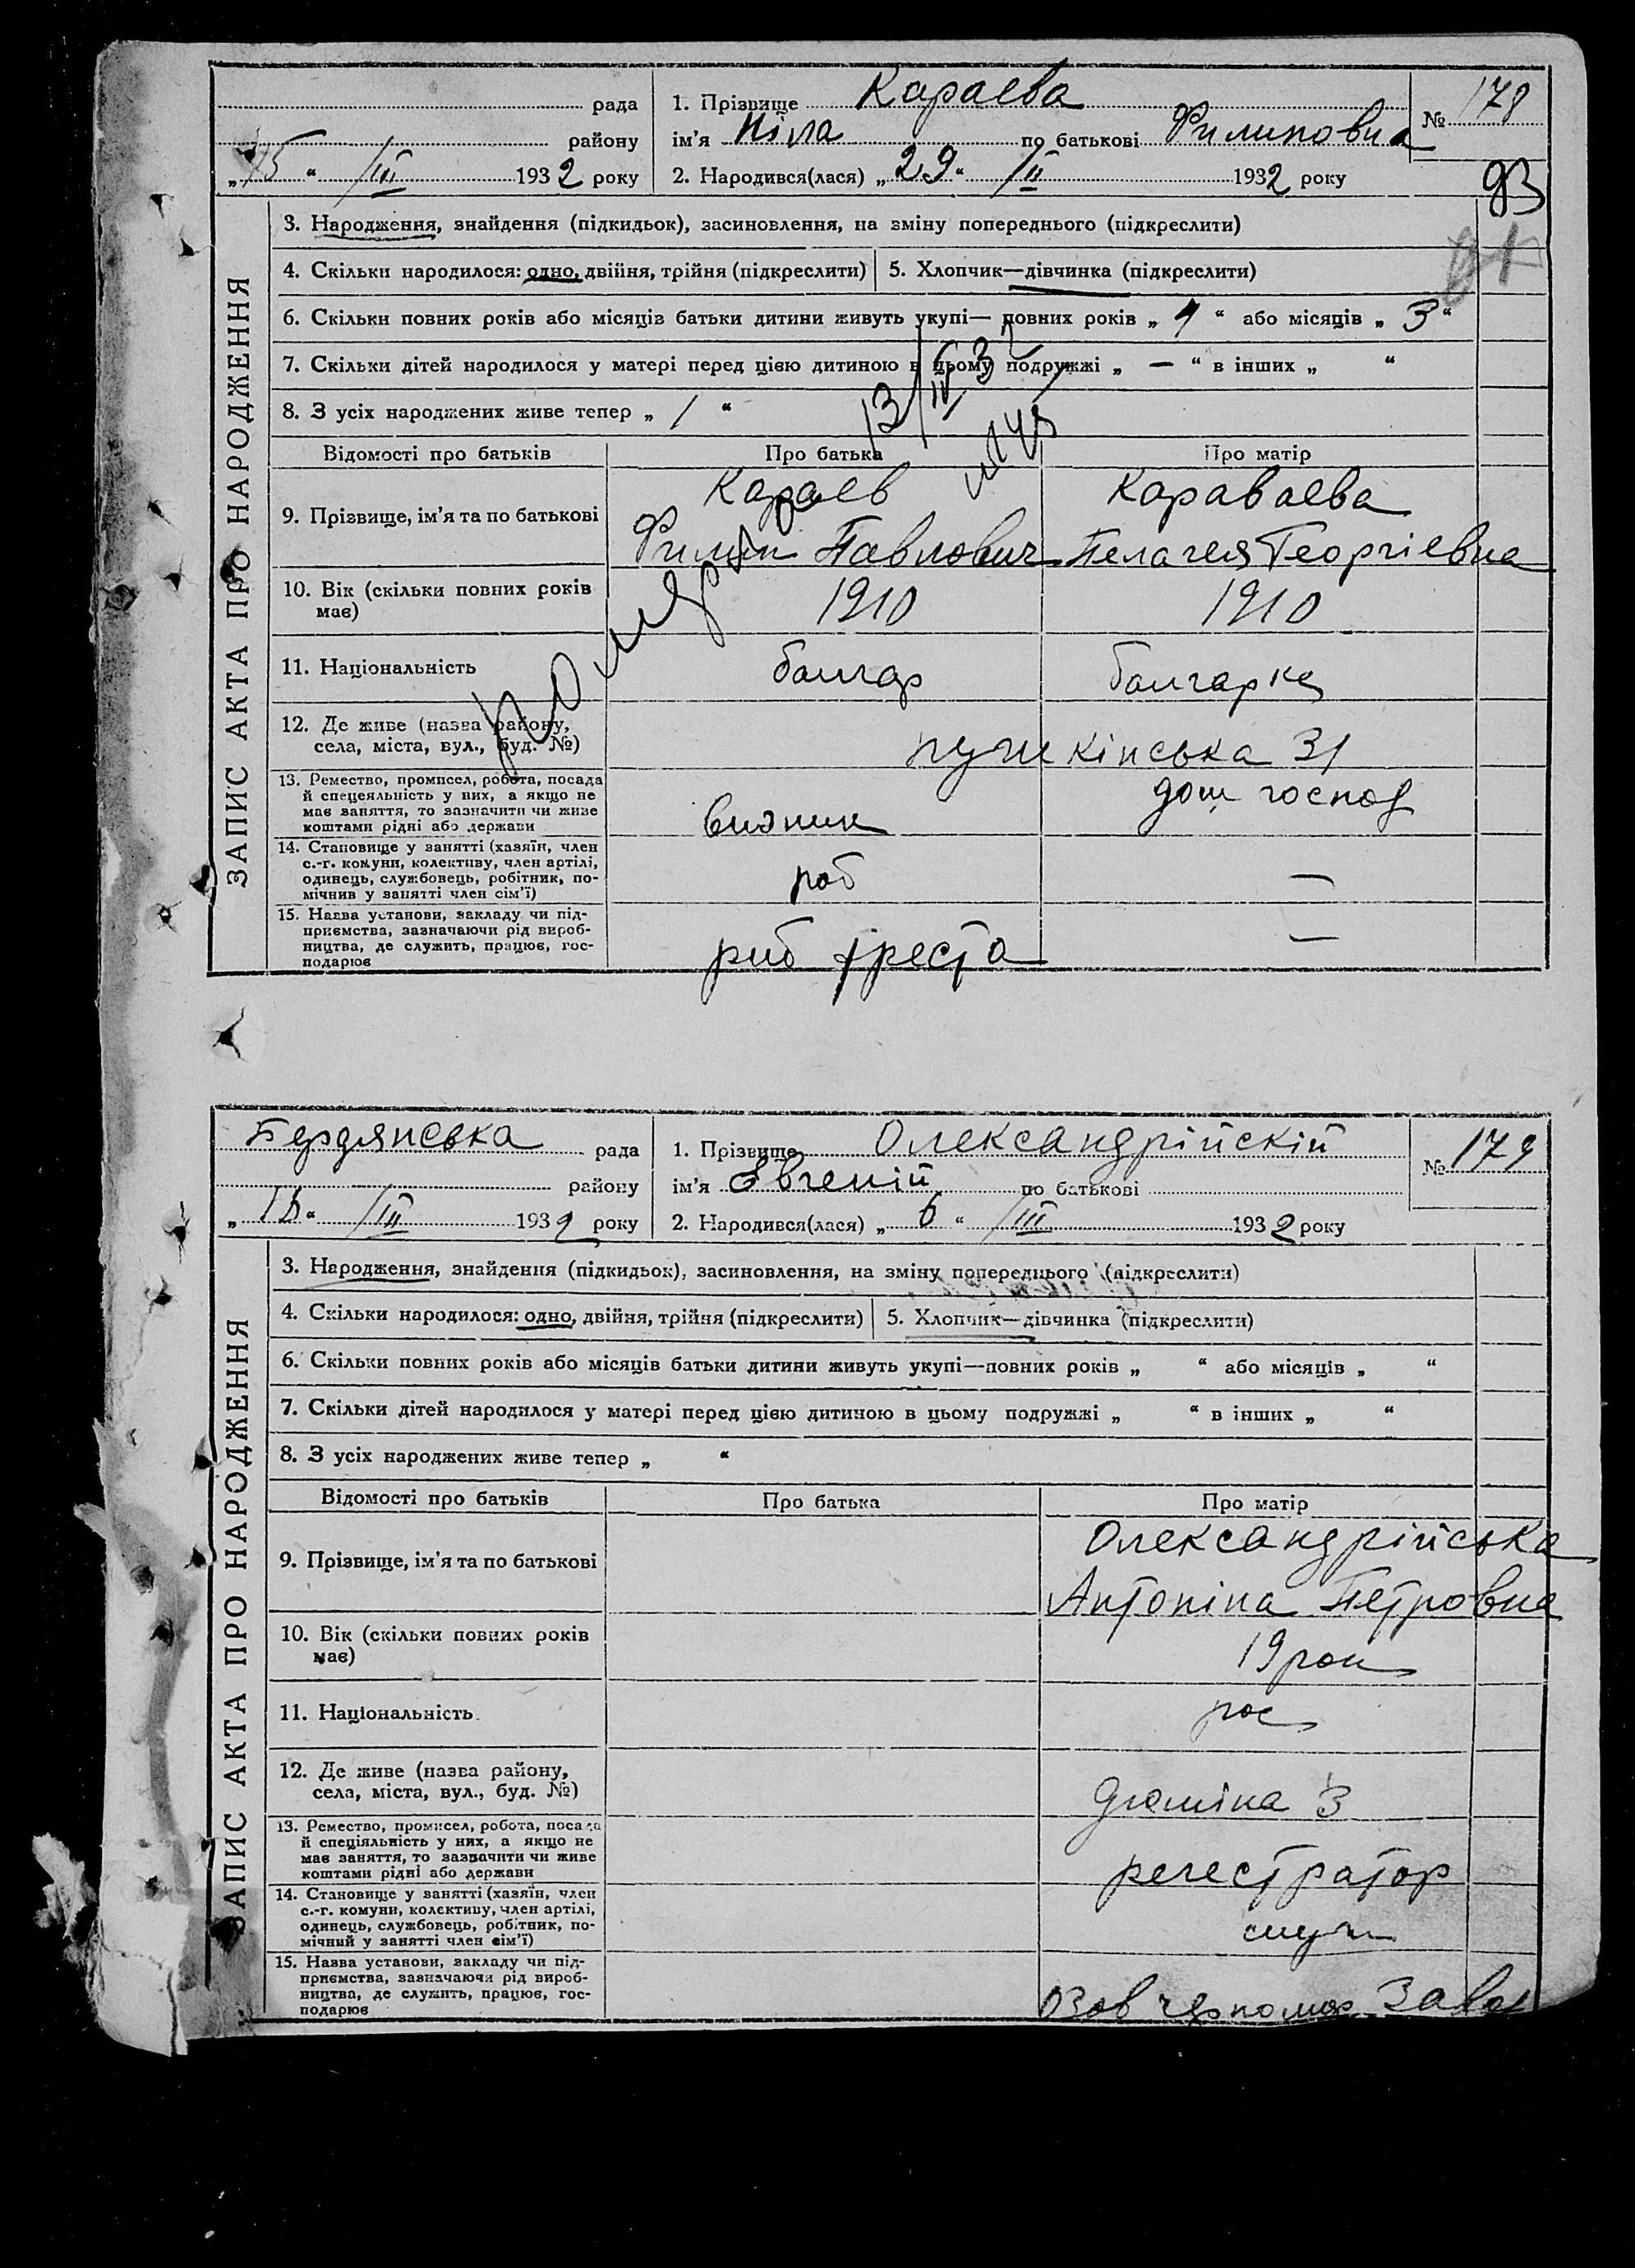 рада
району
„ 15 “ /III 1932 року
1. Прізвище Караева
ім'я Ніла по батькові Филиповна
2. Народився(лася) „ 29 “ /II 1932 року
№ 178
93
ЗАПИС АКТА ПРО НАРОДЖЕННЯ
3. Народження, знайдення (підкидьок), засиновлення, на зміну попереднього (підкреслити)
4. Скільки народилося: одно, двійня, трійня (підкреслити)
5. Хлопчик—дівчинка (підкреслити)
6. Скільки повних років або місяців батьки дитини живуть укупі— повних років „ 1 “ або місяців „ 3 “
7. Скільки дітей народилося у матері перед цією дитиною в цьому подружжі „ — “ в інших „ “
8. З усіх народжених живе тепер „ 1 “
13/IV 32
Померла
Відомості про батьків
Про батька
Про матір
9. Прізвище, ім'я та по батькові
Караев
Филип Павлович
Караваева
Пелагея Георгіевна
10. Вік (скільки повних років
має)
1910
1910
11. Національність
болгар
болгарка
12. Де живе (назва району,
села, міста, вул., буд. №)
пушкінська 31
13. Ремество, промисел, робота, посада
й спецеяльність у них, а якщо не
має заняття, то зазначити чи живе
коштами рідні або держави
визник
дом господ
14. Становище у занятті (хазяїн, член
с.-г. комуни, колективу, член артілі,
одинець, службовець, робітник, по-
мічнив у занятті член сім'ї)
роб
—
15. Назва установи, закладу чи під-
приємства, зазначаючи рід вироб-
ництва, де служить, працює, гос-
подарює
риб треста
—
Бердянська рада
району
„ 15 “ /III 1932 року
1. Прізвище Олександрійскій
ім'я Євгеній по батькові
2. Народився(лася) „ 6 “ /III 1932 року
№ 179
ЗАПИС АКТА ПРО НАРОДЖЕННЯ
3. Народження, знайдення (підкидьок), засиновлення, на зміну попереднього (підкреслити)
4. Скільки народилося: одно, двійня, трійня (підкреслити)
5. Хлопчик—дівчинка (підкреслити)
6. Скільки повних років або місяців батьки дитини живуть укупі—повних років „ “ або місяців „ “
7. Скільки дітей народилося у матері перед цією дитиною в цьому подружжі „ “ в інших „ “
8. З усіх народжених живе тепер „ “
Відомості про батьків
Про батька
Про матір
9. Прізвище, ім'я та по батькові
Олександрійська
Антоніна Петровна
10. Вік (скільки повних років
має)
19 рок
11. Національність
рос
12. Де живе (назва району,
села, міста, вул., буд. №)
Дюміна 3
13. Ремество, промисел, робота, посада
й спеціяльність у них, а якщо не
має заняття, то зазначити чи живе
коштами рідні або держави
регестратор
14. Становище у занятті (хазяїн, член
с.-г. комуни, колективу, член артілі,
одинець, службовець, робітник, по-
мічний у занятті член сім'ї)
служ
15. Назва установи, закладу чи під-
приємства, зазначаючи рід вироб-
ництва, де служить, працює, гос-
подарює
Озов черномор